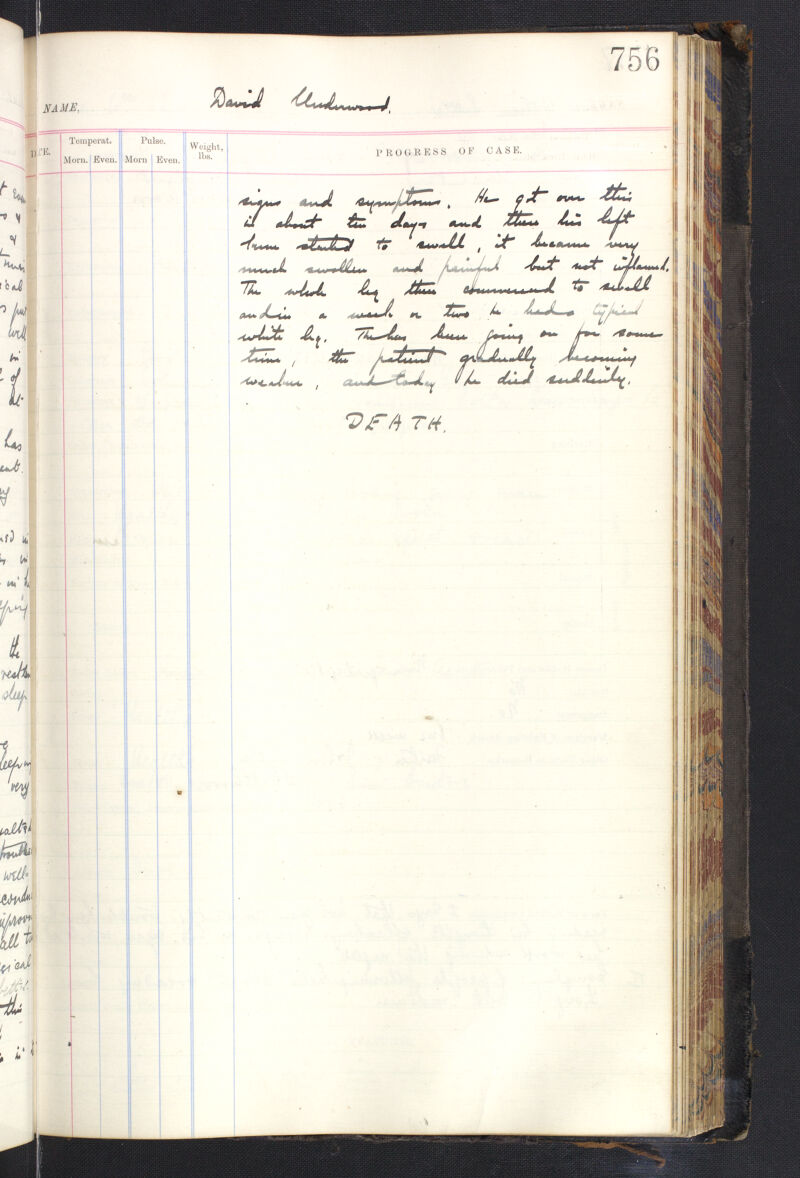 756
NAME, David Underwood.
DATE. Temperat. Pulse. Weight, lbs. PROGRESS OF CASE.
Morn. Even. Morn Even.
signs and symptoms. He got over this
in about ten days and then his left
knee started to swell, it became very
much swollen and painful but not inflamed.
The whole leg then commenced to swell
and in a week or two he had a typical
white leg. This has been going on for some
time, the patient gradually becoming
weaker, and today he died suddenly.
DEATH.